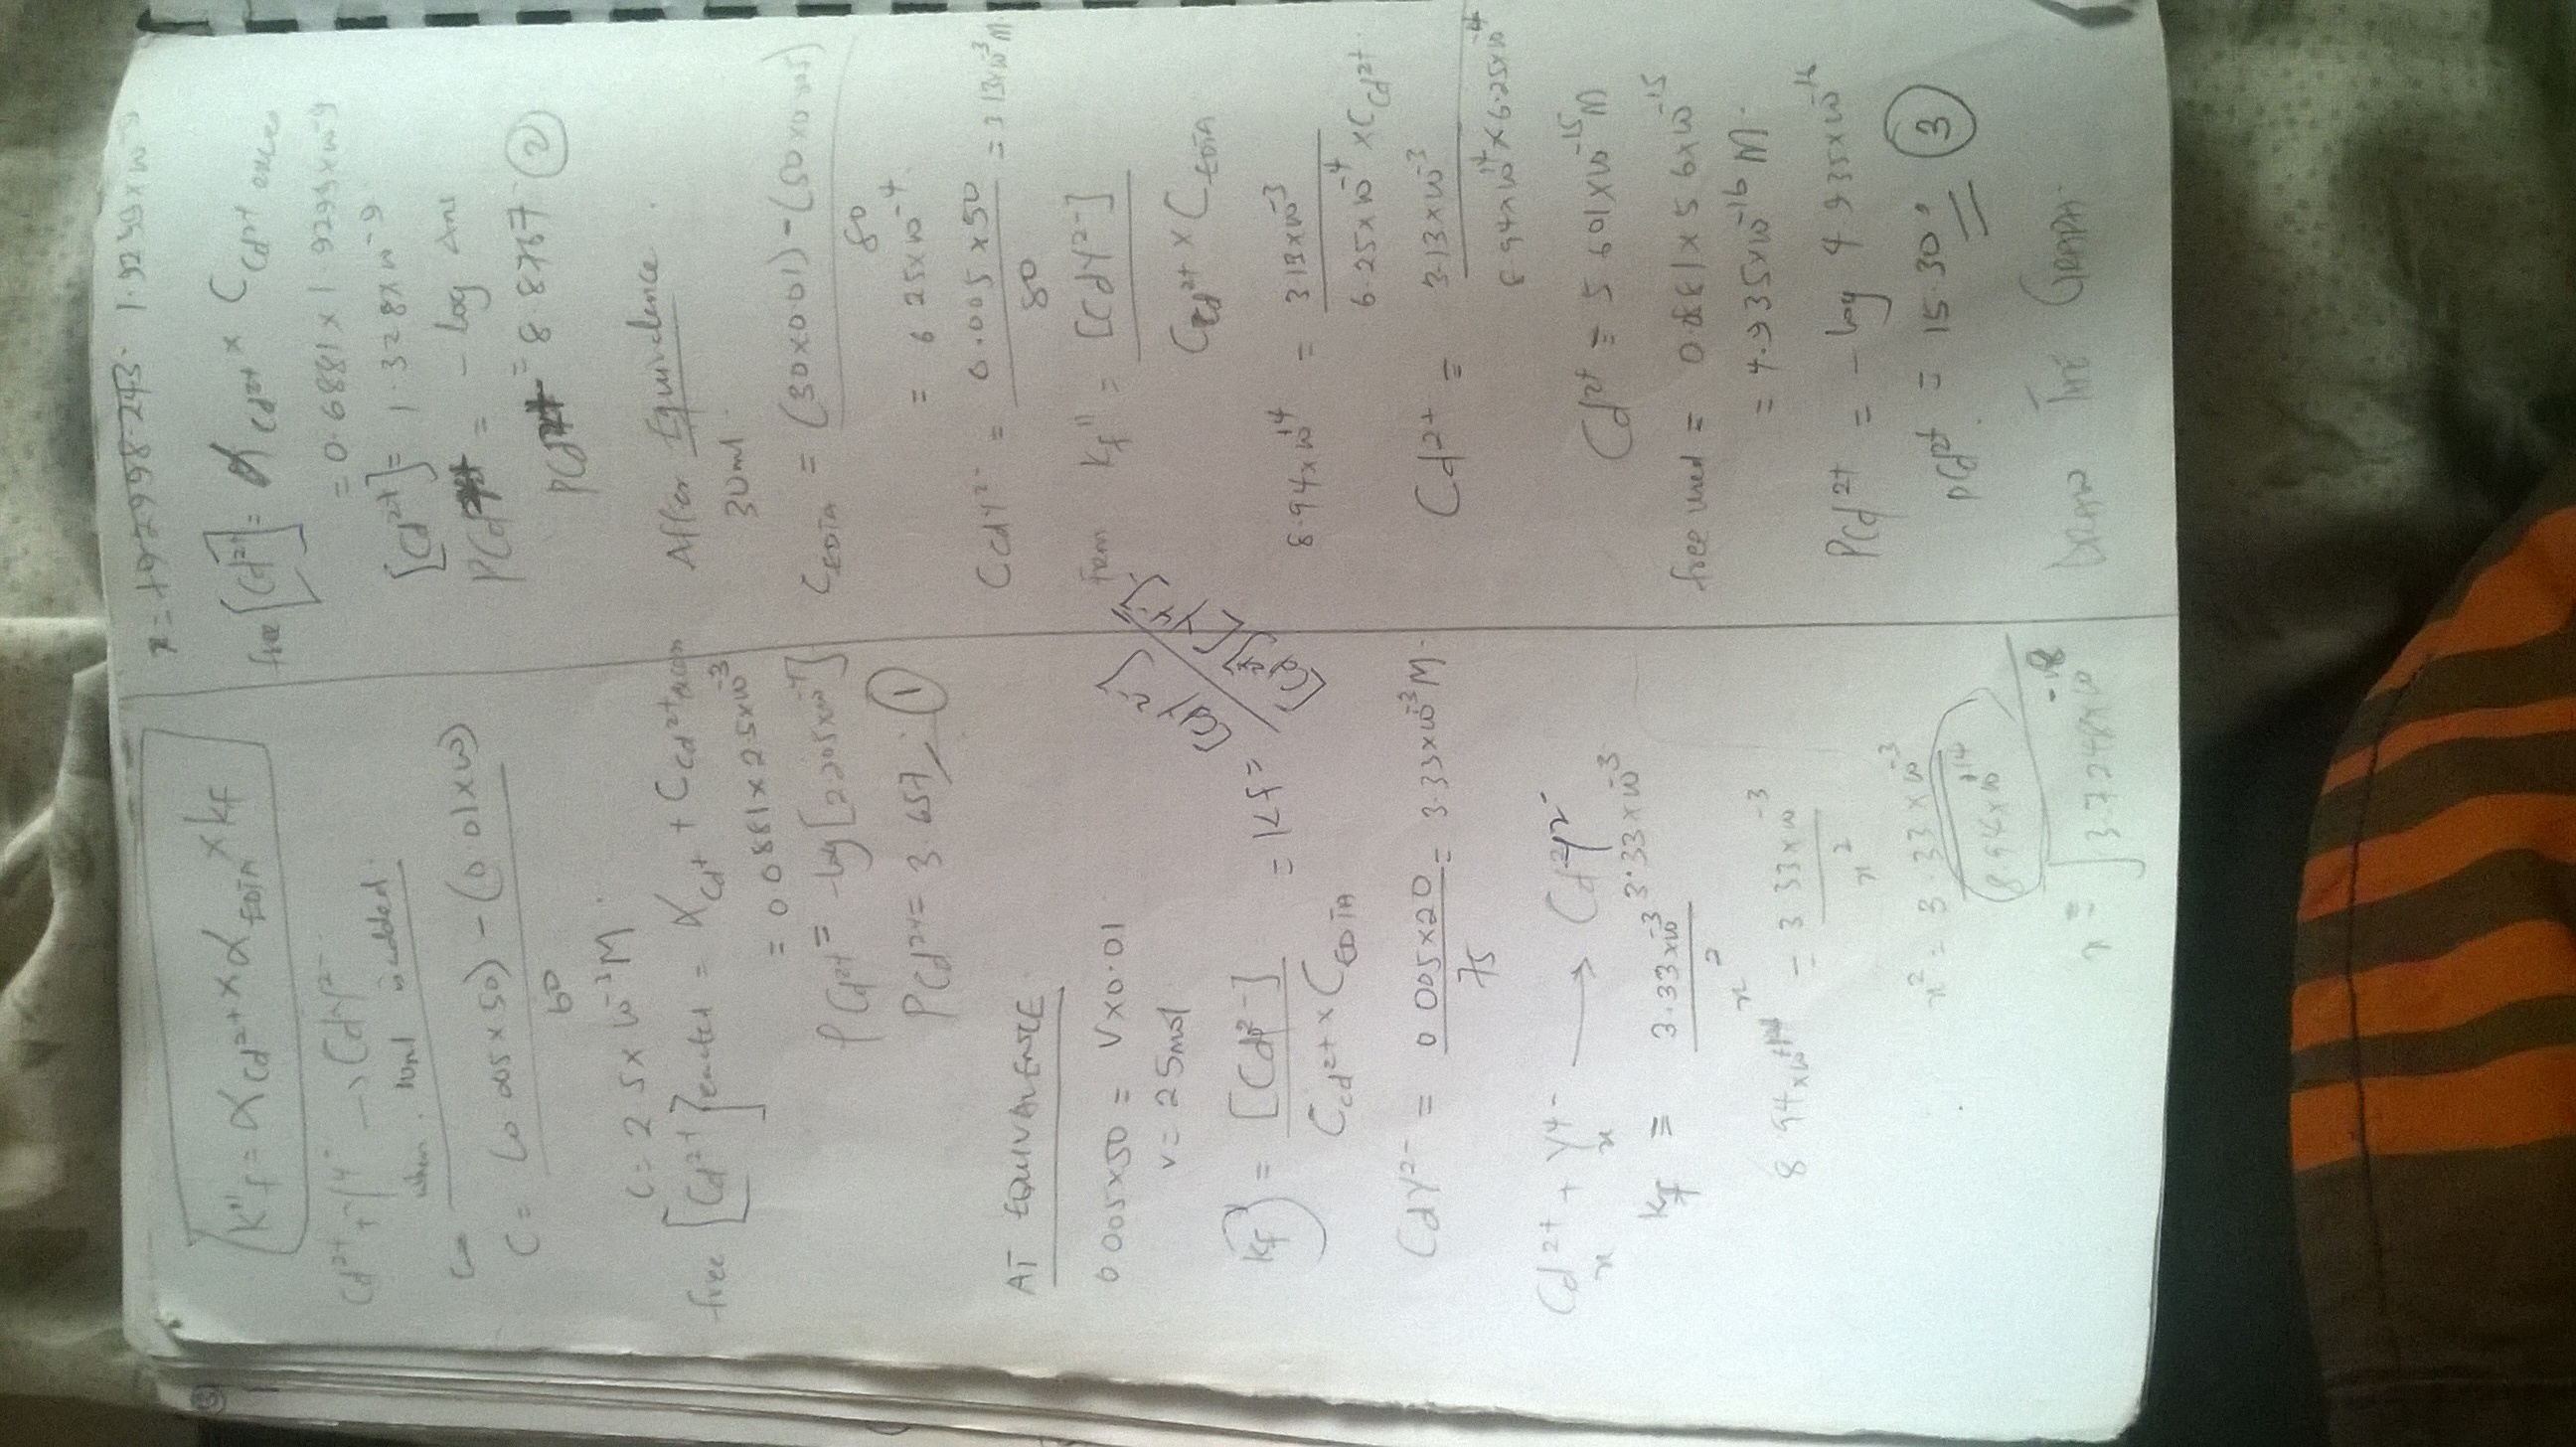 K''f = α Cd²⁺ × α EDTA × kf
Cd²⁺ + Y⁴⁻ → CdY²⁻
when 10ml is added.
C = (0.005×50) − (0.01×10)
60
C = 2.5×10⁻³M.
free [Cd²⁺] = α Cd⁺ + C Cd²⁺
= 0.0881×2.5×10⁻³
PCd²⁺ = −log[2.205×10⁻⁴]
PCd²⁺ = 3.657. ①
AT EQUIVALENCE.
0.005×50 = V×0.01
V = 25ml
kf'' = [CdY²⁻] = kf = [CdY²⁻]
C Cd²⁺ × C EDTA
[Cd²⁺][Y⁴⁻]
CdY²⁻ = 0.005×20 = 3.33×10⁻³M.
75
Cd²⁺ + Y⁴⁻ → CdY²⁻
x x 3.33×10⁻³
kf = 3.33×10⁻³
x²
8.94×10⁺¹⁴ = 3.33×10⁻³
x²
x² = 3.33×10⁻³
8.94×10⁺¹⁴
x = √3.7248×10⁻¹⁸
1.9299×10⁻⁹
free [Cd²⁺] = α Cd²⁺ × C Cd²⁺
= 0.6881×1.9299×10⁻⁹
[Cd²⁺] = 1.328×10⁻⁹
PCd = −log Ans
PCd = 8.8767 ②
After Equivalence.
30ml.
C EDTA = (30×0.01)−(50×0.005)
80
= 6.25×10⁻⁴
C CdY²⁻ = 0.005×50 = 3.13×10⁻³M
80
from kf'' = [CdY²⁻]
C Cd²⁺ × C EDTA
8.94×10⁺¹⁴ = 3.13×10⁻³
6.25×10⁻⁴ × C Cd²⁺
Cd²⁺ = 3.13×10⁻³
8.94×10¹⁴×6.25×10⁻⁴
Cd²⁺ = 5.601×10⁻¹⁵M
free = 0.0881×5.6×10⁻¹⁵
= 4.935×10⁻¹⁶M.
PCd²⁺ = −log 4.935×10⁻¹⁶
pCd²⁺ = 15.30. ③
DRAW THE GRAPH.